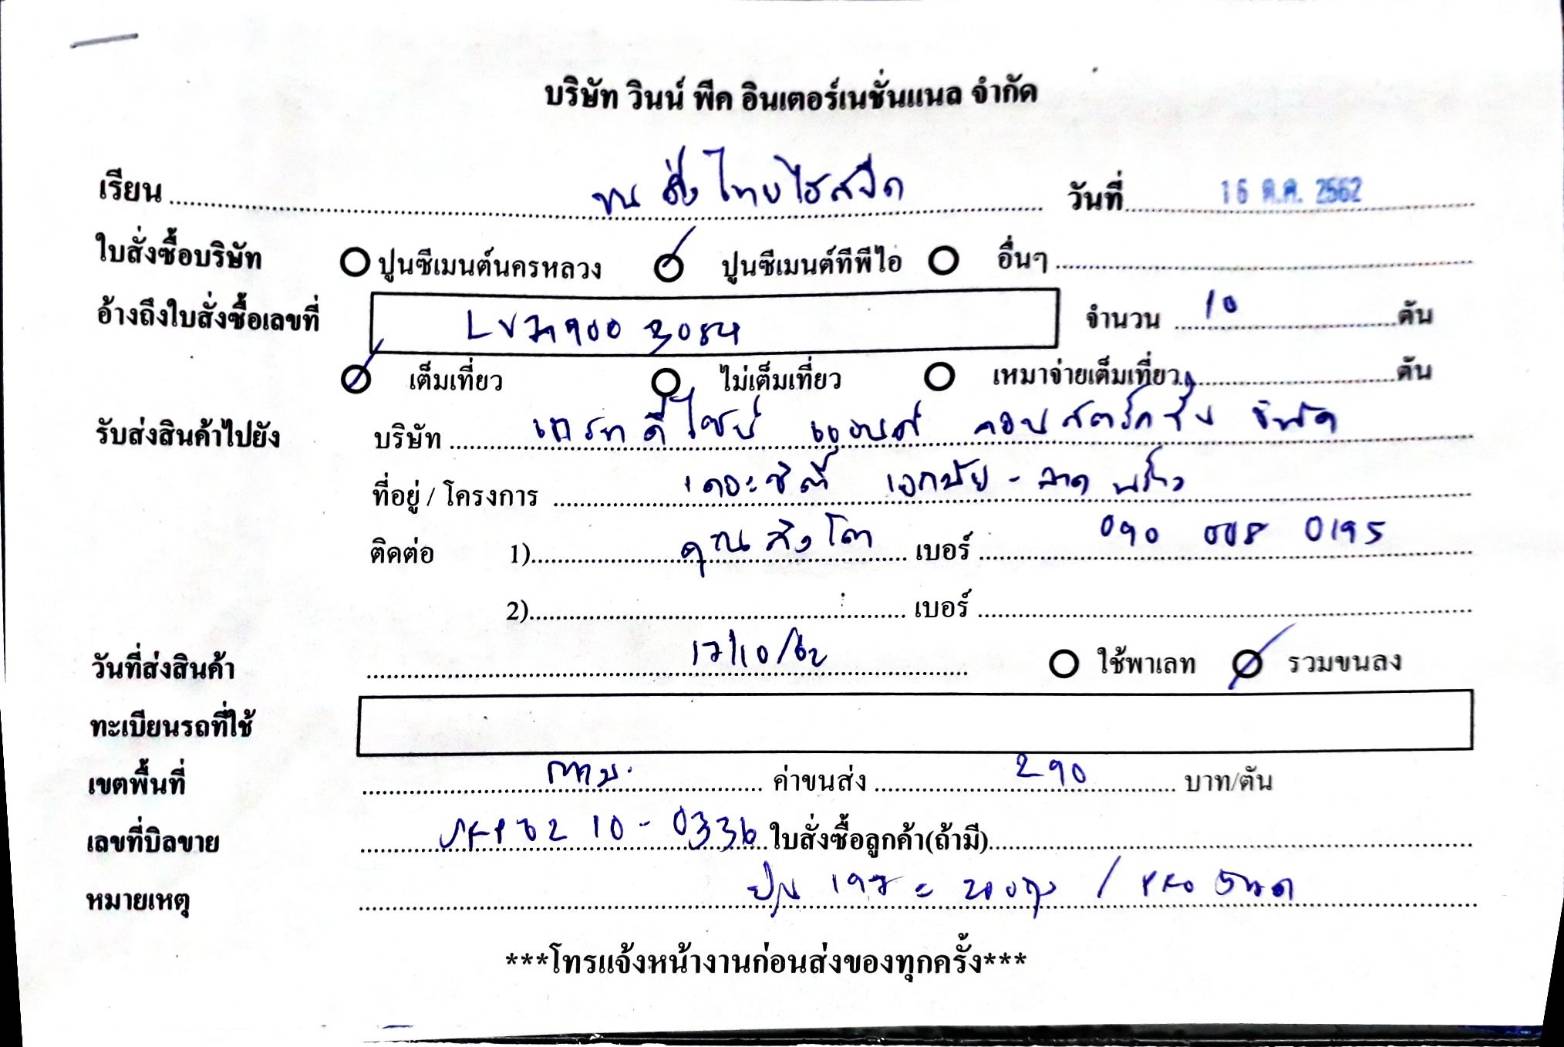 บริษัท วินน์ พีค อินเตอร์เนชั่นแนล จำกัด
เรียน ขนส่งไทยไฮสปีด วันที่ 16 ต.ค. 2562
ใบสั่งซื้อบริษัท ปูนซีเมนต์นครหลวง ปูนซีเมนต์ทีพีไอ อื่นๆ
อ้างถึงใบสั่งซื้อเลขที่ จำนวน 10 ตัน
เต็มเที่ยว ไม่เต็มเที่ยว เหมาจ่ายเต็มเที่ยว ตัน
รับส่งสินค้าไปยัง บริษัท ดีไซน์ แอนด์ คอนสตรัคชั่น จำกัด
ที่อยู่ / โครงการ เดอะซิตี้ เอกมัย - ลาดพร้าว
ติดต่อ 1) คุณสิงโต เบอร์ 090 008 0195
2) เบอร์
วันที่ส่งสินค้า 17/10/62 ใช้พาเลท รวมขนลง
ทะเบียนรถที่ใช้
เขตพื้นที่ กทม. ค่าขนส่ง 290 บาท/ตัน
เลขที่บิลขาย 6210-0336 ใบสั่งซื้อลูกค้า(ถ้ามี)
หมายเหตุ ปูน 197 = 200ถุง /
***โทรแจ้งหน้างานก่อนส่งของทุกครั้ง***